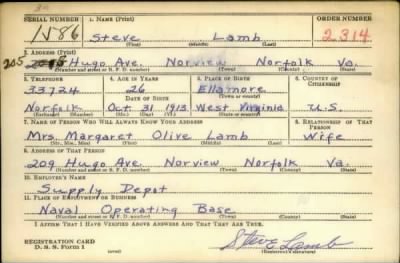 SERIAL NUMBER 1. NAME (Print) ORDER NUMBER
N86 Steve Lamb 2314
(First) (Middle) (Last)
2. ADDRESS (Print)
205 Hugo Ave. Norview Norfolk Va.
(Number and street or R. F. D. number) (Town) (County) (State)
3. TELEPHONE 4. AGE IN YEARS 5. PLACE OF BIRTH 6. COUNTRY OF CITIZENSHIP
33724 26 Ellamore
DATE OF BIRTH (Town or county)
Norfolk Oct 31 1913 West Virginia U.S.
(Exchange) (Number) (Mo.) (Day) (Yr.) (State or country)
7. NAME OF PERSON WHO WILL ALWAYS KNOW YOUR ADDRESS 8. RELATIONSHIP OF THAT PERSON
Mrs. Margaret Olive Lamb Wife
(Mr., Mrs., Miss) (First) (Middle) (Last)
9. ADDRESS OF THAT PERSON
209 Hugo Ave. Norview Norfolk Va.
(Number and street or R. F. D. number) (Town) (County) (State)
10. EMPLOYER'S NAME
Supply Depot
11. PLACE OF EMPLOYMENT OR BUSINESS
Naval Operating Base
(Number and street or R. F. D. number) (Town) (County) (State)
I AFFIRM THAT I HAVE VERIFIED ABOVE ANSWERS AND THAT THEY ARE TRUE.
REGISTRATION CARD
D. S. S. Form 1 Steve Lamb
(Registrant's signature)